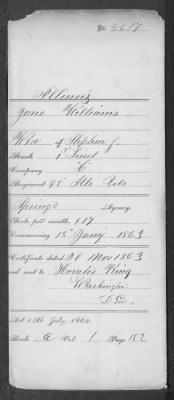 No 3617
Illinois
Jane Williams
Wid of Stephen J.
Rank 1st Lieut
Company C
Regiment 98 Ills Vols
Springf Agency.
Rate per month, $17
Commencing 15 Jany 1863
Certificate dated 26 Nov 1863
and sent to Horatio King
Washington
D.C.
Act 14th July, 1862.
Book A Vol 1 Page 182